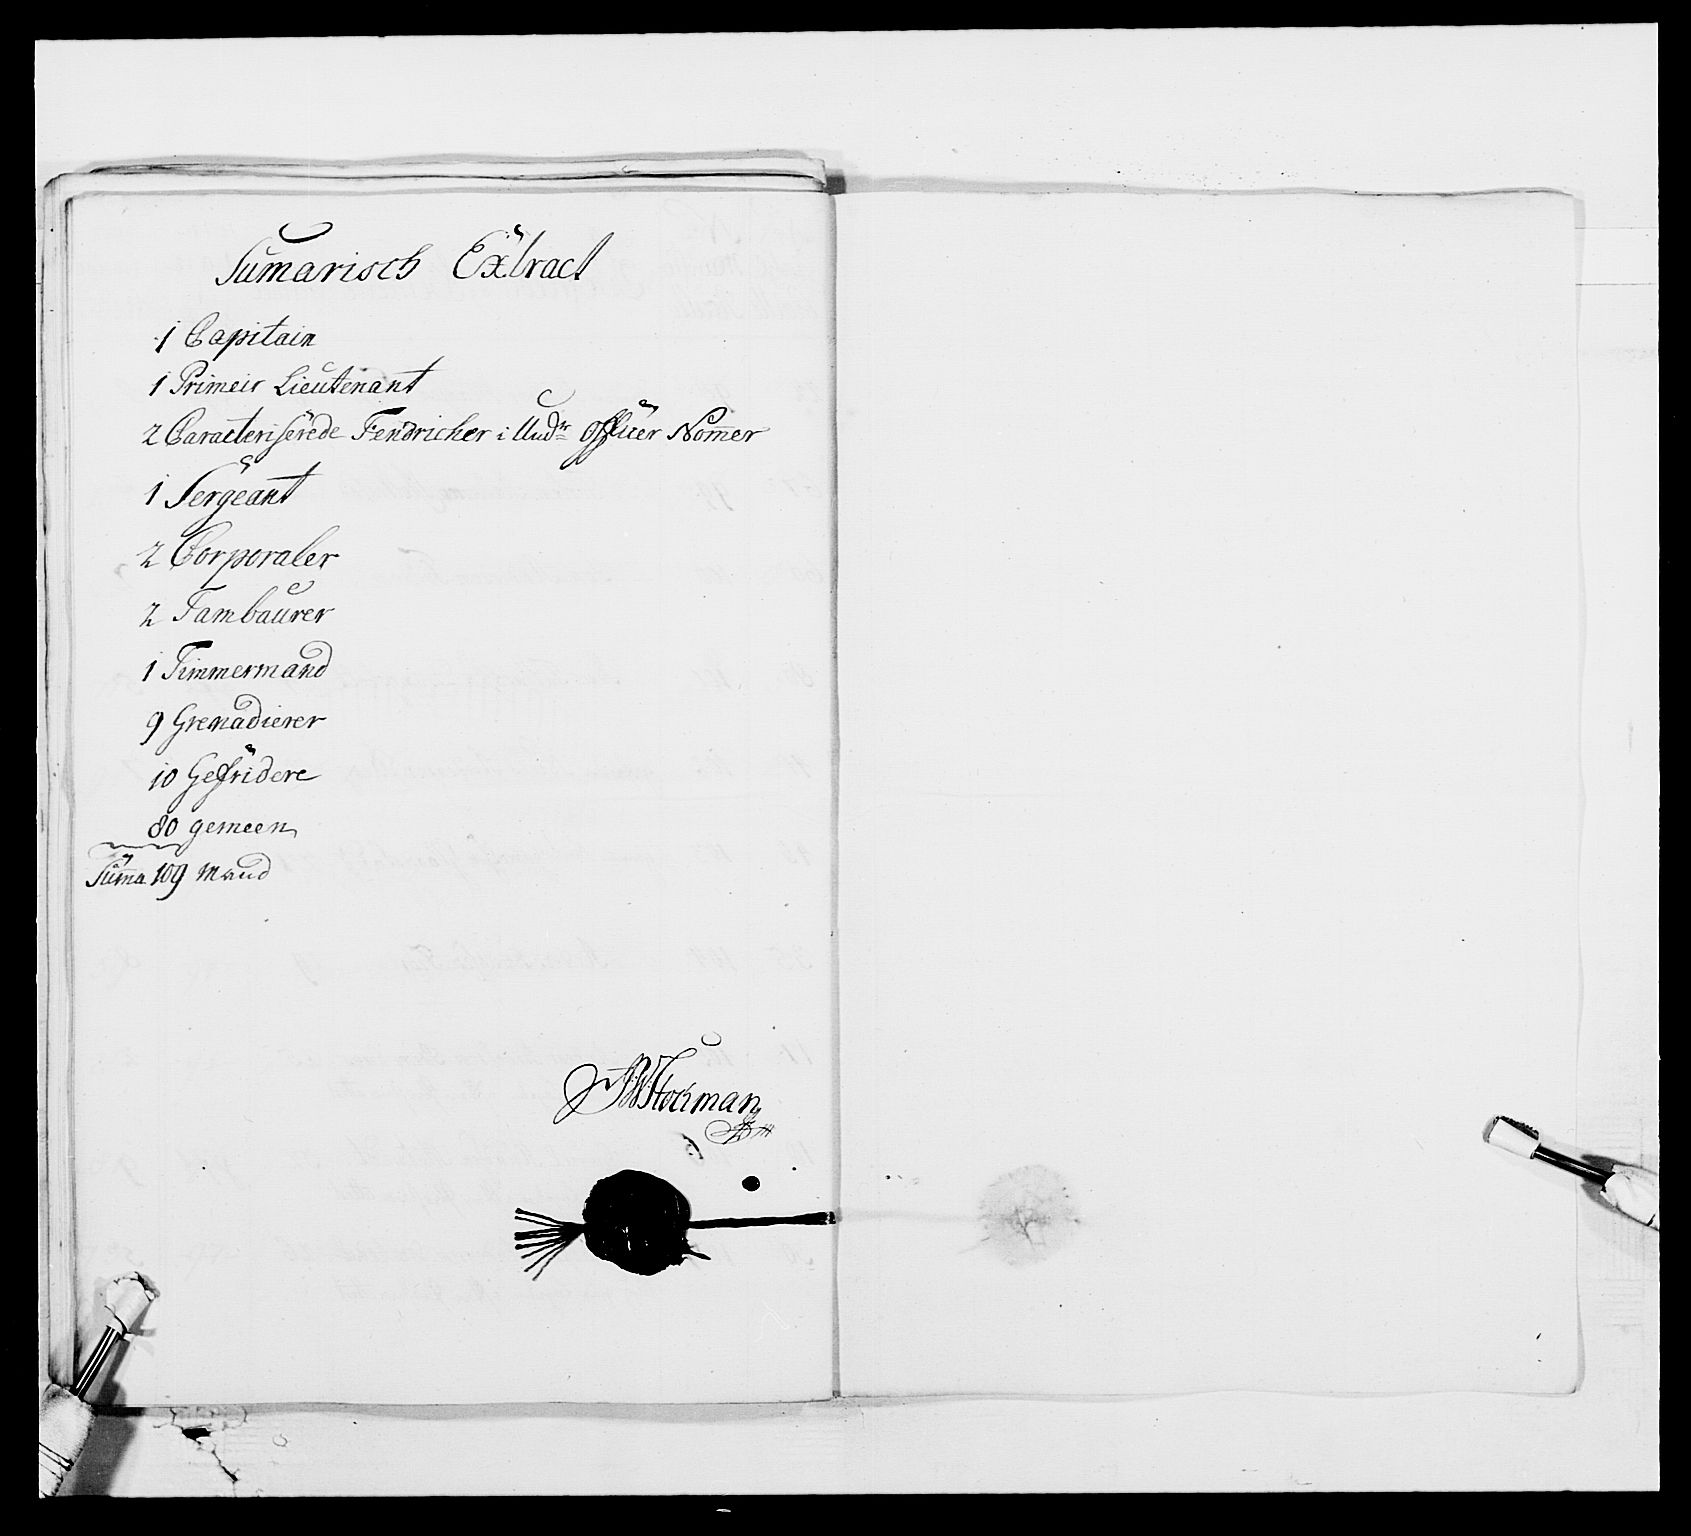 Sumarisch Extract
1 Capitain
1 Primeir Lieutenant
2 Caracteriserede Fendricher i Undr Officier Nomer
1 Sergeant
2 Corporaler
2 Tambaurer
1 Timmermand
9 Grenadierer
10 Gefridere
80 gemeen
Suma 109 Mand